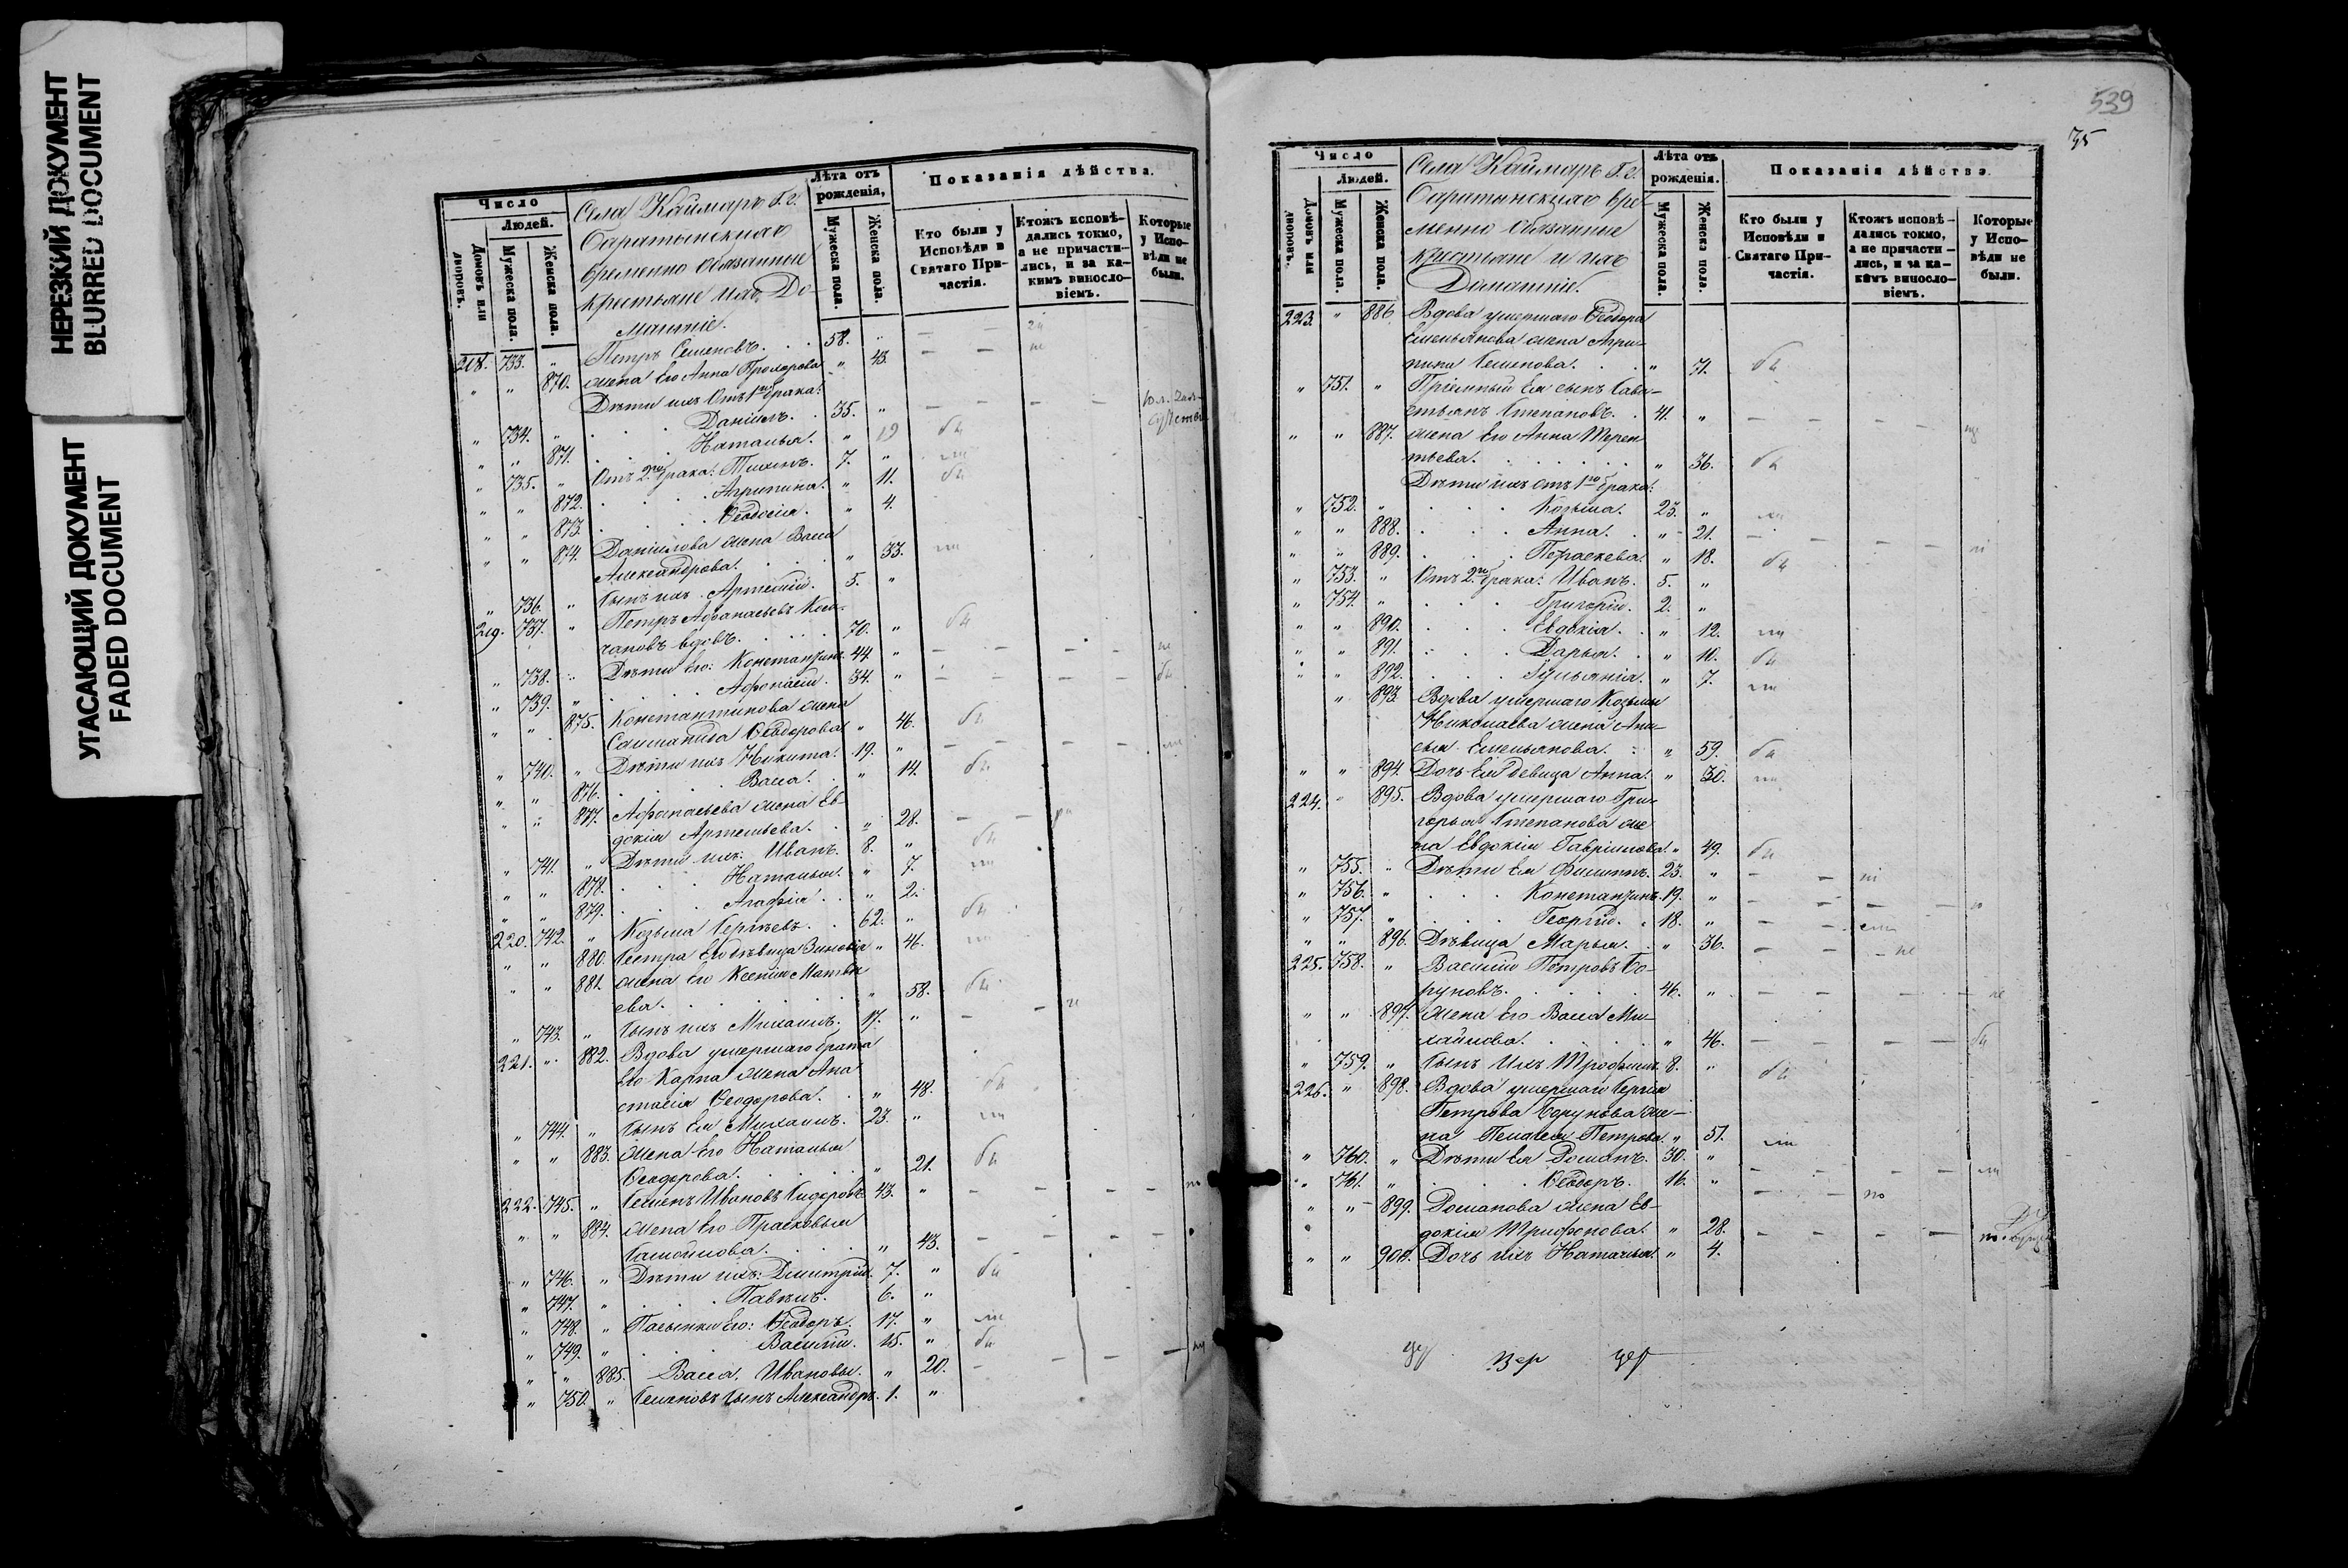 НЕРЕЗКИЙ ДОКУМЕНТ
BLURRED DOCUMENT
УГАСАЮЩИЙ ДОКУМЕНТ
FADED DOCUMENT
Число
Людей.
Домовъ или дворовъ.
Мужеска пола.
Женска пола.
Села Каймаръ Г.
Баратынскаго
временно обязанные
крестьяне и ихъ До-
машніе.
Лѣта отъ рожденія,
Мужеска пола.
Женска пола.
Показанія дѣйства.
Кто были у Исповѣди и Святаго Причастія.
Ктожъ исповѣ-дались токмо, а не причасти-лись, и за ка-кимъ винословіемъ.
Которые у Испо-вѣди не были.
218. 733. " Петръ Семеновъ. 58. "
" " 870. Жена Его Анна Прохорова " 43.
Дѣти ихъ Отъ 1го брака:
" 734. " Даніилъ. 35. "
" " 871. Наталья. " 19
" 735. " Отъ 2го брака: 7. "
" " 872. Агрипина. " 11.
" " 873. Ѳеодосія. " 4.
" " 874. Даніилова жена Васса
Александрова. " 33.
" 736. " Сынъ ихъ Артемій. 5. "
219. 737. " Петръ Афанасьевъ
вдовъ. 70. "
" 738. " Дѣти Его: Константинъ 44. "
" 739. " Афонасій. 34. "
" " 875. Константинова жена
Ѳеодорова " 46.
" 740. " Дѣти ихъ Никита. 19. "
" " 876. Васса. " 14.
" " 877. Афонасьева жена Ев-
докія Артемьева. " 28.
" 741. " Дѣти ихъ: Иванъ. 8. "
" " 878. Наталья. " 7.
" " 879. Агафія. " 2.
220. 742. " Козьма Сергѣевъ. 62. "
" " 880. Сестра Его дѣвица Зиновія " 46.
" " 881. Жена Его Ксенія Матвѣ
ева. " 58.
" 743. " Сынъ ихъ Михаилъ. 17. "
221. " 882. Вдова умершаго брата
Его Карпа жена Ана
стасія Ѳеодорова. " 48.
" 744. " Сынъ Ея Михаилъ. 23. "
" " 883. Жена Его Наталья
Ѳеодорова. " 21.
222. 745. " Семенъ Ивановъ Сидоровъ 43. "
" " 884. Жена Его Прасковья
Самойлова. " 43.
" 746. " Дѣти ихъ: Димитрій. 7. "
" 747. " Павелъ. 6. "
" 748. " Пасынки Его: Ѳеодоръ. 17. "
" 749. " Василій. 15. "
" " 885. Васса, Ивановы. " 20.
" 750. " Семеновъ сынъ Александръ. 1. "
539
35
Число
Людей.
Домовъ или дворовъ.
Мужеска пола.
Женска пола.
Села Каймаръ Г.
Баратынскаго вре-
менно обязанные
крестьяне и ихъ
Домашніе.
Лѣта отъ рожденія.
Мужеска пола.
Женска пола.
Показанія дѣйства.
Кто были у Исповѣди и Святаго При-частія.
Ктожъ исповѣ-дались токмо, а не причасти-лись, и за ка-кимъ виносло-віемъ.
Которые у Испо-вѣди не были.
223. " 886. Вдова умершаго Ѳеодора
Емельянова жена Агри-
пина Семенова. " 71.
" 751. " Пріемный Ея сынъ Сава-
стьянъ Степановъ. 41. "
" " 887. Жена Его Анна Терен
тьева. " 36.
Дѣти ихъ отъ 1го брака:
" 752. " Козьма. 23. "
" " 888. Анна. " 21.
" " 889. Параскева. " 18.
" 753. " Отъ 2го брака: Иванъ. 5. "
" 754. " Григорій. 2. "
" " 890. Евдокія. " 12.
" " 891. Дарья. " 10.
" " 892. Іуліанія. " 7.
" 893. Вдова умершаго Козьмы
Николаева жена Ани-
сья Емельянова. " 59.
" " 894. Дочь Ея девица Анна. " 30.
224. " 895. Вдова умершаго Гри-
горья Степанова же
на Евдокія Гавріилова. " 49.
" 755. " Дѣти Ея Филиппъ. 23. "
" 756. " Константинъ. 19. "
" 757. " Георгій. 18. "
" " 896. Дѣвица Марья. " 36.
225. 758. " Василій Петровъ Бо-
руновъ. 46. "
" " 897. Жена Его Васса Ми-
хайлова. " 46.
" 759. " Сынъ Ихъ Трофимъ. 8. "
226. " 898. Вдова умершаго Сергея
Петрова Борунова же-
на Пелагея Петрова. " 51.
" 760. " Дѣти Ея Романъ. 30. "
" 761. " Ѳеодоръ. 16. "
" " 899. Романова жена Ев-
докія Трифонова. " 28.
" " 900. Дочь ихъ Наталья. " 4.